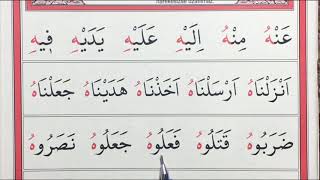 عَنْهُ مِنْهُ اِلَيْهِ عَلَيْهِ يَدَيْهِ فٖيهِ
اَنْزَلْنَاهُ اَرْسَلْنَاهُ اَخَذْنَاهُ هَدَيْنَاهُ جَعَلْنَاهُ
ضَرَبُوهُ قَتَلُوهُ فَعَلُوهُ جَعَلُوهُ نَصَرُوهُ